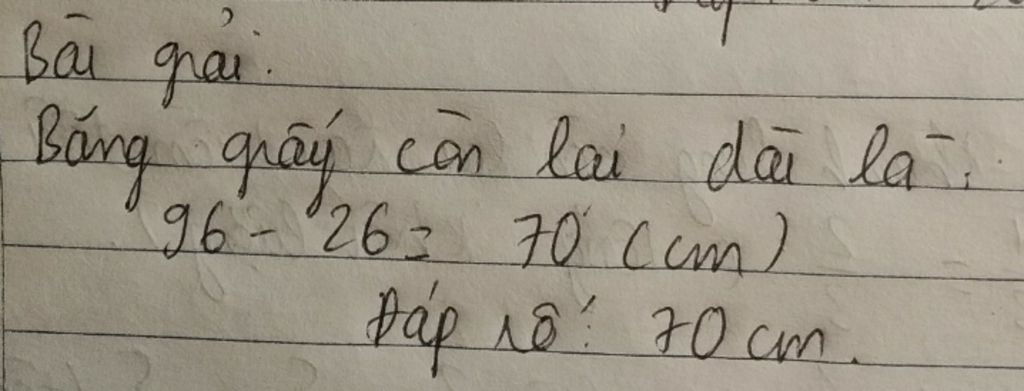 Bài giải.
Băng giấy còn lại dài là:
96 - 26 = 70 (cm)
Đáp số: 70 cm.